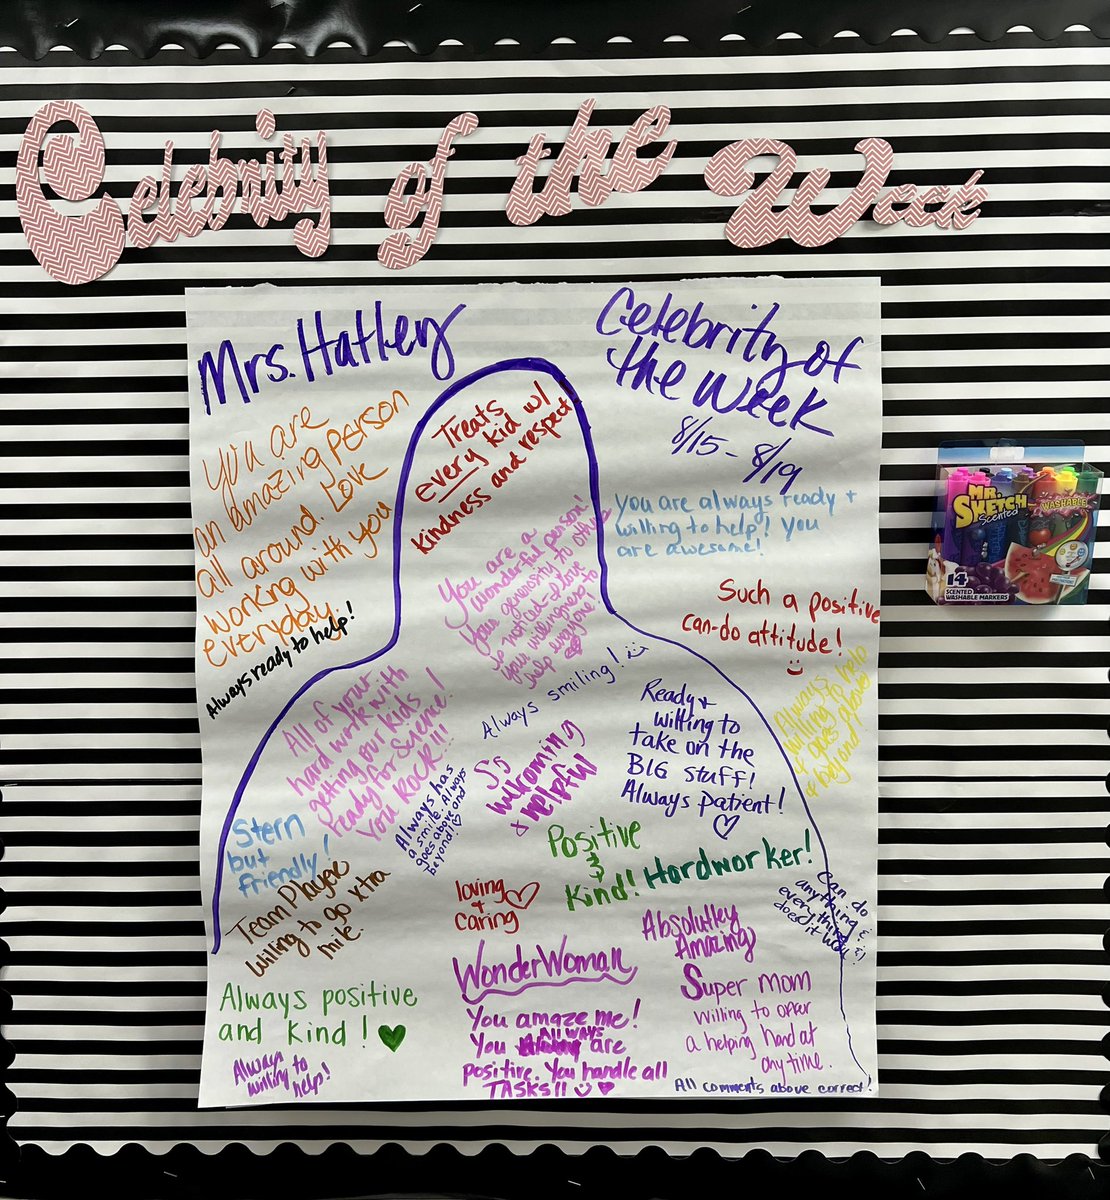 Celebrity of the Week
Mrs. Hatley
Celebrity of
the Week
8/15 - 8/19
You are
an amazing person
all around. Love
working with you
everyday.
Always ready to help!
Treats
every kid w/
kindness and respect
You are always ready +
willing to help! You
are awesome!
You are a
wonderful person!
Your generosity to others
is noticed - I love
your willingness to
help everyone!
Such a positive
can-do attitude!
Always
willing to help
& goes above
& beyond
All of your
hard work with
getting our kids
ready for Science!
You ROCK!!!
Always smiling!
Ready +
willing to
take on the
BIG STUFF!
Always patient!
welcoming
& helpful
Always has
a smile. Always
goes above and
beyond!
Stern
but
friendly!
Team Player
willing to go xtra
mile.
Positive
&
Kind!
Hardworker!
loving
+
caring
can do
anything &
everything &
does it well!
Absolutley
Amazing
WonderWoman
You amaze me!
You ALWAYS are
positive. You handle all
TASKS!!
Super mom
willing to offer
a helping hand at
any time.
Always positive
and kind!
Always
willing to
help!
All comments above correct!
MR.
SKETCH
Scented
WASHABLE
14
SCENTED
WASHABLE MARKERS